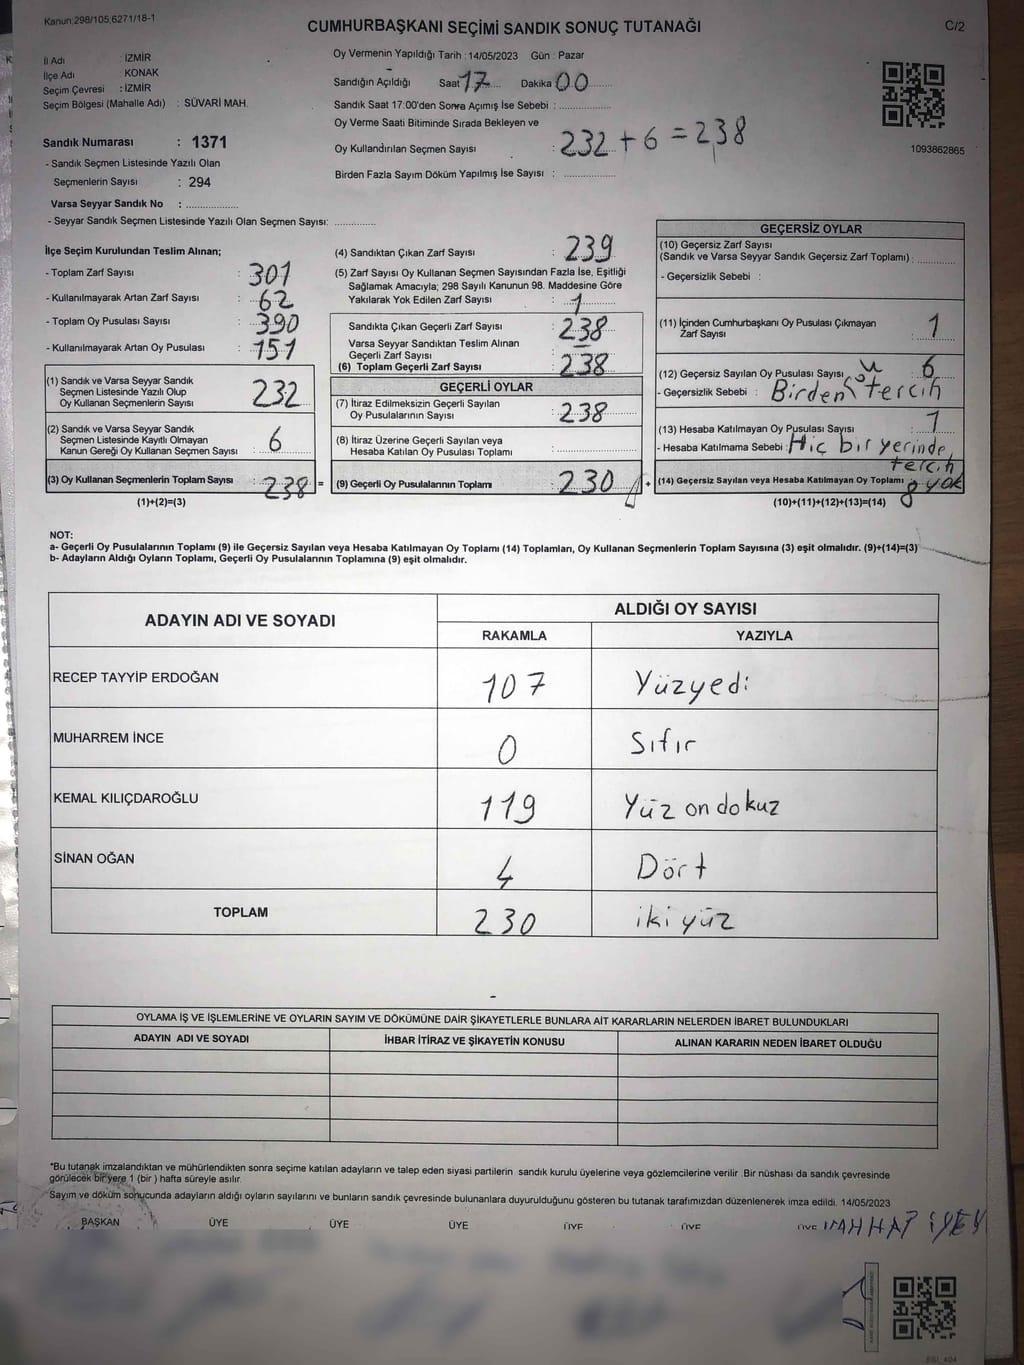 Kanun:298/105,6271/18-1
CUMHURBAŞKANI SEÇİMİ SANDIK SONUÇ TUTANAĞI
C/2
İl Adı : İZMİR
İlçe Adı : KONAK
Seçim Çevresi : İZMİR
Seçim Bölgesi (Mahalle Adı) : SÜVARİ MAH.
Sandık Numarası : 1371
- Sandık Seçmen Listesinde Yazılı Olan
Seçmenlerin Sayısı : 294
Varsa Seyyar Sandık No : ..................
- Seyyar Sandık Seçmen Listesinde Yazılı Olan Seçmen Sayısı: ..............
Oy Vermenin Yapıldığı Tarih : 14/05/2023 Gün : Pazar
Sandığın Açıldığı Saat 17 Dakika 00
Sandık Saat 17:00'den Sonra Açımış İse Sebebi : ..................
Oy Verme Saati Bitiminde Sırada Bekleyen ve
Oy Kullandırılan Seçmen Sayısı : 232 + 6 = 238
Birden Fazla Sayım Döküm Yapılmış İse Sayısı : ..................
1093862865
İlçe Seçim Kurulundan Teslim Alınan;
- Toplam Zarf Sayısı : 301
- Kullanılmayarak Artan Zarf Sayısı : 62
- Toplam Oy Pusulası Sayısı : 390
- Kullanılmayarak Artan Oy Pusulası : 151
(1) Sandık ve Varsa Seyyar Sandık
Seçmen Listesinde Yazılı Olup
Oy Kullanan Seçmenlerin Sayısı 232
(2) Sandık ve Varsa Seyyar Sandık
Seçmen Listesinde Kayıtlı Olmayan
Kanun Gereği Oy Kullanan Seçmen Sayısı : 6
(3) Oy Kullanan Seçmenlerin Toplam Sayısı : 238 =
(1)+(2)=(3)
(4) Sandıktan Çıkan Zarf Sayısı : 239
(5) Zarf Sayısı Oy Kullanan Seçmen Sayısından Fazla İse, Eşitliği
Sağlamak Amacıyla; 298 Sayılı Kanunun 98. Maddesine Göre
Yakılarak Yok Edilen Zarf Sayısı : 1
Sandıkta Çıkan Geçerli Zarf Sayısı : 238
Varsa Seyyar Sandıktan Teslim Alınan
Geçerli Zarf Sayısı : —
(6) Toplam Geçerli Zarf Sayısı : 238
GEÇERLİ OYLAR
(7) İtiraz Edilmeksizin Geçerli Sayılan
Oy Pusulalarının Sayısı : 238
(8) İtiraz Üzerine Geçerli Sayılan veya
Hesaba Katılan Oy Pusulası Toplamı : ..................
(9) Geçerli Oy Pusulalarının Toplamı : 230 +
GEÇERSİZ OYLAR
(10) Geçersiz Zarf Sayısı
(Sandık ve Varsa Seyyar Sandık Geçersiz Zarf Toplamı) : ..............
- Geçersizlik Sebebi :
(11) İçinden Cumhurbaşkanı Oy Pusulası Çıkmayan
Zarf Sayısı : 1
(12) Geçersiz Sayılan Oy Pusulası Sayısı : 6
- Geçersizlik Sebebi : Birden ü tercih
(13) Hesaba Katılmayan Oy Pusulası Sayısı : 1
- Hesaba Katılmama Sebebi : Hiç bir yerinde
tercih
yok
(14) Geçersiz Sayılan veya Hesaba Katılmayan Oy Toplamı : 8
(10)+(11)+(12)+(13)=(14)
NOT:
a- Geçerli Oy Pusulalarının Toplamı (9) ile Geçersiz Sayılan veya Hesaba Katılmayan Oy Toplamı (14) Toplamları, Oy Kullanan Seçmenlerin Toplam Sayısına (3) eşit olmalıdır. (9)+(14)=(3)
b- Adayların Aldığı Oyların Toplamı, Geçerli Oy Pusulalarının Toplamına (9) eşit olmalıdır.
ADAYIN ADI VE SOYADI
ALDIĞI OY SAYISI
RAKAMLA YAZIYLA
RECEP TAYYİP ERDOĞAN 107 Yüzyedi
MUHARREM İNCE 0 Sıfır
KEMAL KILIÇDAROĞLU 119 Yüz on dokuz
SİNAN OĞAN 4 Dört
TOPLAM 230 iki yüz
OYLAMA İŞ VE İŞLEMLERİNE VE OYLARIN SAYIM VE DÖKÜMÜNE DAİR ŞİKAYETLERLE BUNLARA AİT KARARLARIN NELERDEN İBARET BULUNDUKLARI
ADAYIN ADI VE SOYADI İHBAR İTİRAZ VE ŞİKAYETİN KONUSU ALINAN KARARIN NEDEN İBARET OLDUĞU
*Bu tutanak imzalandıktan ve mühürlendikten sonra seçime katılan adayların ve talep eden siyasi partilerin sandık kurulu üyelerine veya gözlemcilerine verilir .Bir nüshası da sandık çevresinde
görülecek bir yere 1 (bir ) hafta süreyle asılır.
Sayım ve döküm sonucunda adayların aldığı oyların sayılarını ve bunların sandık çevresinde bulunanlara duyurulduğunu gösteren bu tutanak tarafımızdan düzenlenerek imza edildi. 14/05/2023
BAŞKAN ÜYE ÜYE ÜYE ÜYE ÜYE ÜYE